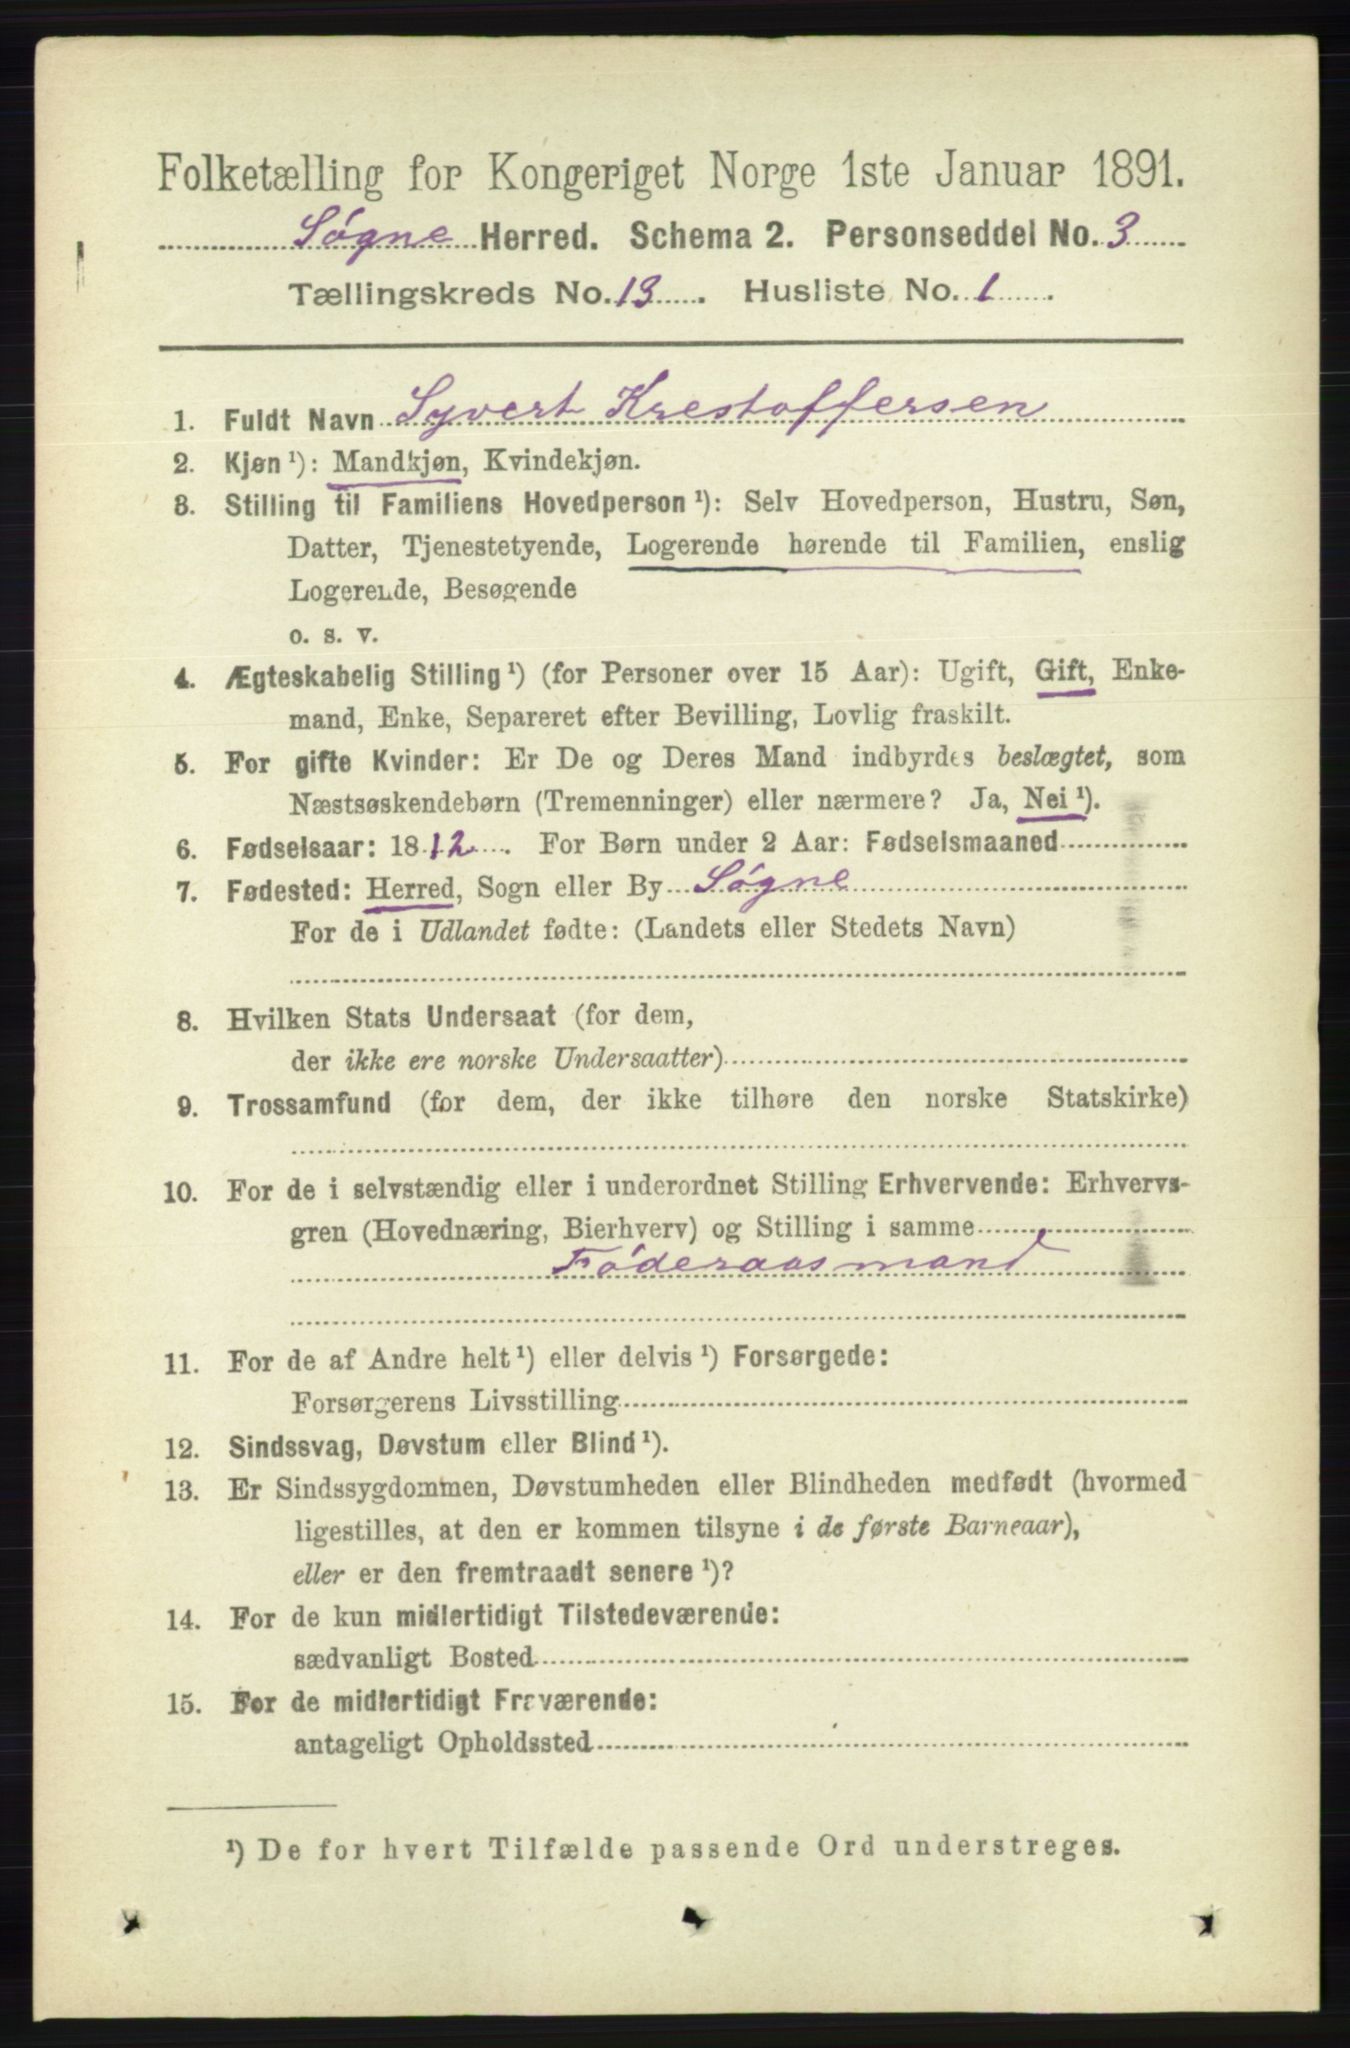 Folketælling for Kongeriget Norge 1ste Januar 1891.
Søgne Herred. Schema 2. Personseddel No. 3
Tællingskreds No. 13. Husliste No. 1.
1. Fuldt Navn Syvert Krestoffersen
2. Kjøn ¹): Mandkjøn, Kvindekjøn.
3. Stilling til Familiens Hovedperson ¹): Selv Hovedperson, Hustru, Søn,
Datter, Tjenestetyende, Logerende hørende til Familien, enslig
Logerende, Besøgende
o. s. v.
4. Ægteskabelig Stilling ¹) (for Personer over 15 Aar): Ugift, Gift, Enke-
mand, Enke, Separeret efter Bevilling, Lovlig fraskilt.
5. For gifte Kvinder: Er De og Deres Mand indbyrdes beslægtet, som
Næstsøskendebørn (Tremenninger) eller nærmere? Ja, Nei ¹).
6. Fødselsaar: 1812. For Børn under 2 Aar: Fødselsmaaned
7. Fødested: Herred, Sogn eller By Søgne
For de i Udlandet fødte: (Landets eller Stedets Navn)
8. Hvilken Stats Undersaat (for dem,
der ikke ere norske Undersaatter)
9. Trossamfund (for dem, der ikke tilhøre den norske Statskirke)
10. For de i selvstændig eller i underordnet Stilling Erhvervende: Erhvervs-
gren (Hovednæring, Bierhverv) og Stilling i samme
Føderaasmand
11. For de af Andre helt ¹) eller delvis ¹) Forsørgede:
Forsørgerens Livsstilling
12. Sindssvag, Døvstum eller Blind ¹).
13. Er Sindssygdommen, Døvstumheden eller Blindheden medfødt (hvormed
ligestilles, at den er kommen tilsyne i de første Barneaar),
eller er den fremtraadt senere ¹)?
14. For de kun midlertidigt Tilstedeværende:
sædvanligt Bosted
15. For de midlertidigt Fraværende:
antageligt Opholdssted
¹) De for hvert Tilfælde passende Ord understreges.